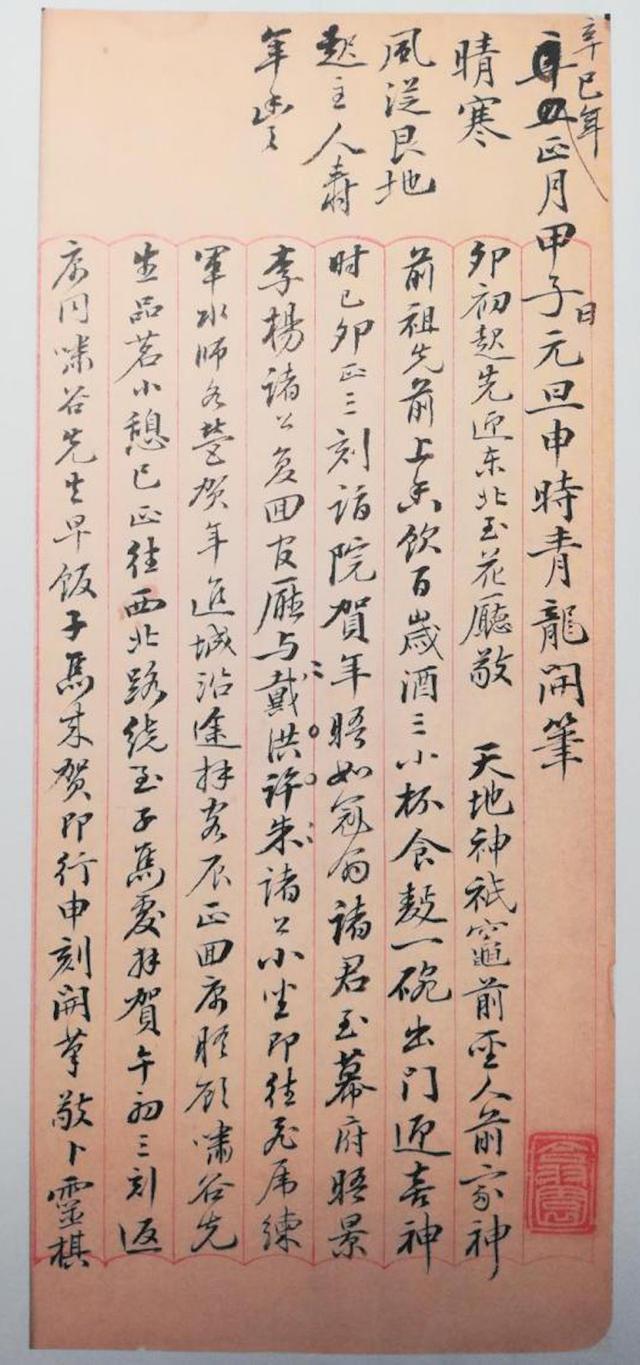 辛巳年
正月甲子日元旦申時青龍開筆
晴寒
風從艮地
起主人壽
年豐
卯初起先迎东北玉花廳敬 天地神祇竈前聖人前家神
前祖先前上香飲百歲酒三小杯食麩一碗出门迎喜神
时已卯正三刻詣院賀年晤如冠翁諸君至幕府晤景
李楊諸公复回官廳与戴洪许朱諸公小坐即往虎席練
軍水师各營贺年進城沿途拜客辰正回寓賸顧嘯谷先
生品茗小憩巳正往西北路绕至子馬處拜賀午初三刻返
寓同嘯谷先生早饭子馬来贺即行申刻開筆敬卜靈棋